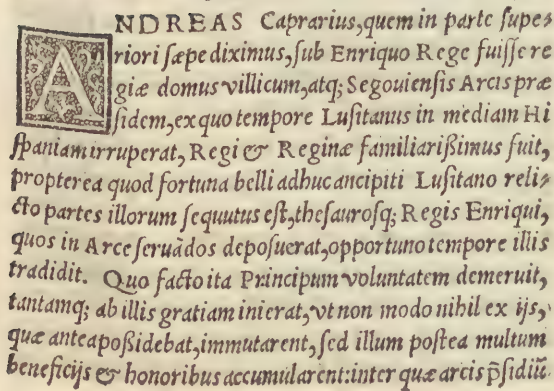 ANDREAS Caprarius,quem in parte supe-
riori sæpe diximus, sub Enriquo Rege fuisse re
giæ domus villicum,atq; Segouiensis Arcis præ
sidem,ex quo tempore Lusitanus in mediam Hi
spaniam irruperat, Regi & Reginæ familiarißimus fuit,
propterea quod fortuna belli adhuc ancipiti Lusitano reli-
cto partes illorum sequutus est,thesaurosq; Regis Enriqui,
quos in Arce seruãdos deposuerat,opportuno tempore illis
tradidit. Quo facto ita Principum voluntatem demeruit,
tantamq; ab illis gratiam inierat,vt non modo nihil ex ijs,
quæ antea poßidebat,immutarent, sed illum postea multum
beneficijs & honoribus accumularent:inter quæ arcis p̃sidiũ